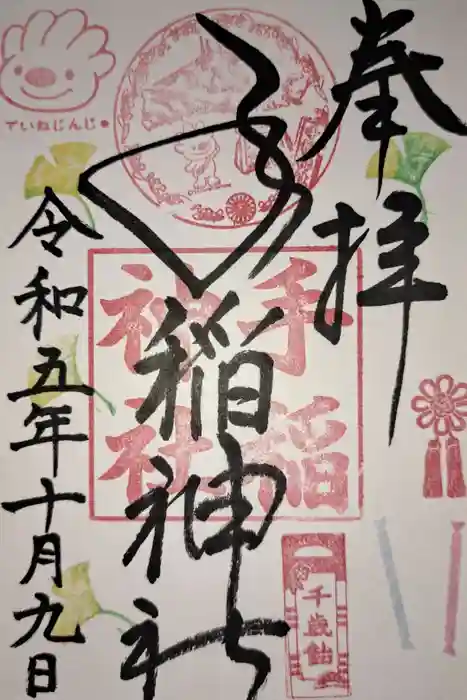 奉拝
手稲神社
令和五年十月九日
手稲
神社
ていねじんじゃ
千歳飴